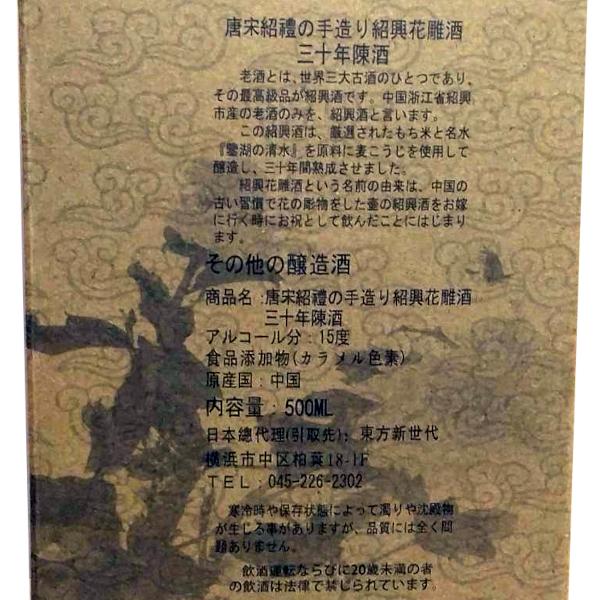 唐宋紹禮の手造り紹興花雕酒
三十年陳酒
老酒とは、世界三大古酒のひとつであり、
その最高級品が紹興酒です。中国浙江省紹興
市産の老酒のみを、紹興酒と言います。
この紹興酒は、厳選されたもち米と名水
『鑒湖の清水』を原料に麦こうじを使用して
醸造し、三十年間熟成させました。
紹興花雕酒という名前の由来は、中国の
古い習慣で花の彫物をした壷の紹興酒をお嫁
に行く時にお祝として飲んだことにはじまり
ます。
その他の醸造酒
商品名:唐宋紹禮の手造り紹興花雕酒
三十年陳酒
アルコール分:15度
食品添加物(カラメル色素)
原産国:中国
内容量:500ML
日本總代理(引取先):東方新世代
横浜市中区柏葉18-1F
TEL:045-226-2302
寒冷時や保存状態によって濁りや沈殿物
が生じる事がありますが、品質には全く問
題ありません。
飲酒運転ならびに20歳未満の者
の飲酒は法律で禁じられています。